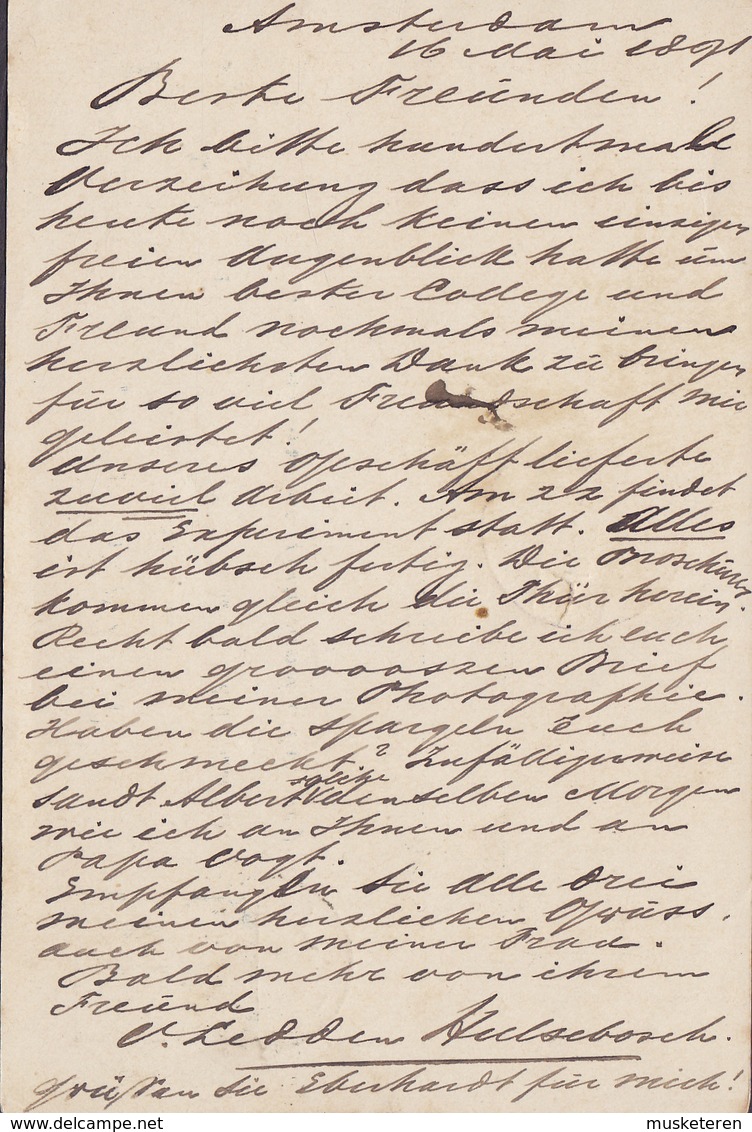 Amsterdam
16 Mai 1891
Beste Freunden!
Ich bitte hundertmall
Verzeihung dass ich bis
heute noch keinen einzigen
freien Augenblick hatte um
Ihnen bester College und
Freund nochmals meinen
herzlichsten Dank zu bringen
für so viel Freundschaft mir
geleistet!
Unseres Geschäft lieferte
zuviel Arbeit. Am 22 findet
das Experiment statt. Alles
ist hübsch fertig. Die Broschüren
kommen gleich die Thür herein.
Recht bald schreibe ich euch
einen grooooszen Brief
bei meiner Photographie.
Haben die Spargeln Euch
geschmeckt? Zufälligerweise
sandt Albert solche denselben Morgen
wie ich an Ihnen und an
Papa Vogt.
Empfangen Sie Alle drei
meinen herzlichen Grüss,
auch von meiner Frau.
Bald mehr von ihrem
Freund
v. Ledden Hulsebosch.
Grüssen Sie Eberhardt für mich!
musketeren